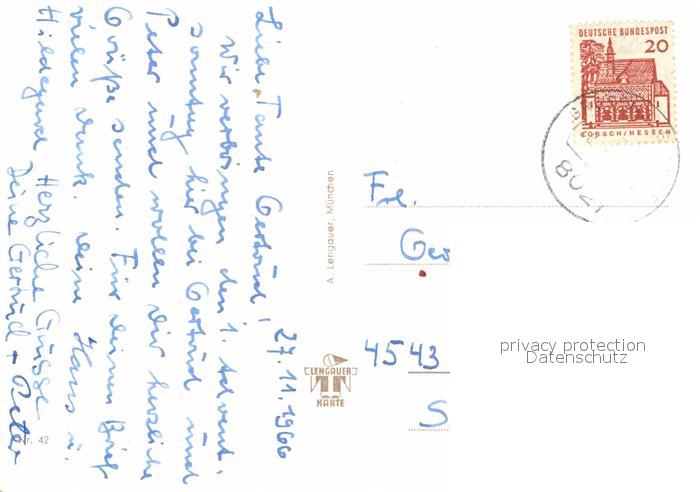 27.11.1966
Liebe Tante Gertrud!
Wir verbringen den 1. Advent-
sonntag hier bei Gertrud und
Peter und wollen Dir herzliche
Grüße senden. Für Deinen Brief
vielen Dank. Deine Hans u.
Hildegard Herzliche Grüsse
Deine Gertrud + Peter
Nr. 42
A. Lengauer, München
LENGAUER
KARTE
DEUTSCHE BUNDESPOST
20
LORSCH/HESSEN
8021
Frl.
Ger
4543
S
privacy protection
Datenschutz